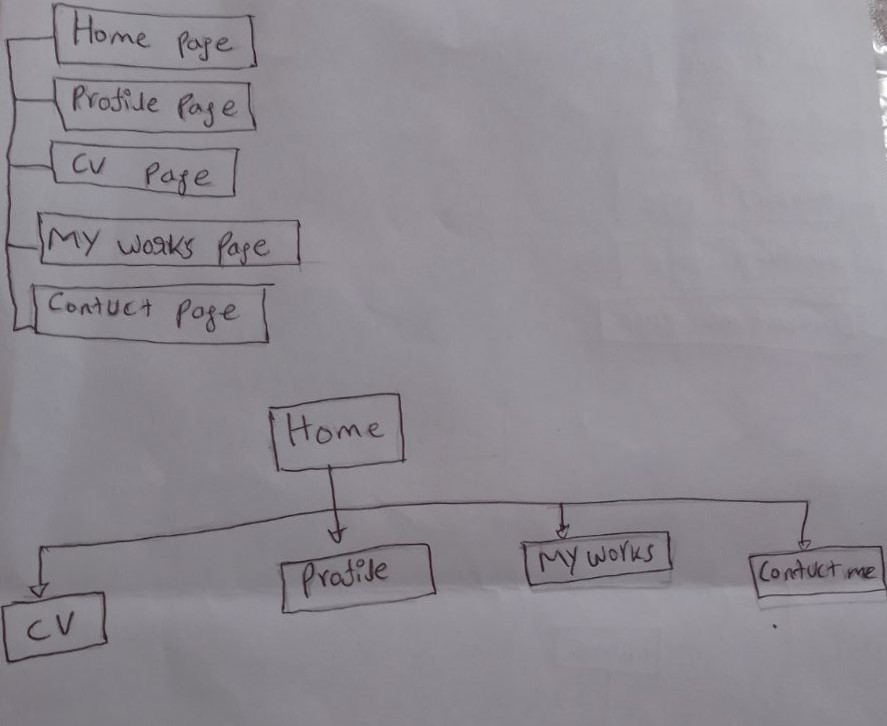 Home Page
Profile Page
CV Page
MY works Page
Contuct Page
Home
CV
Profile
MY works
Contuct me